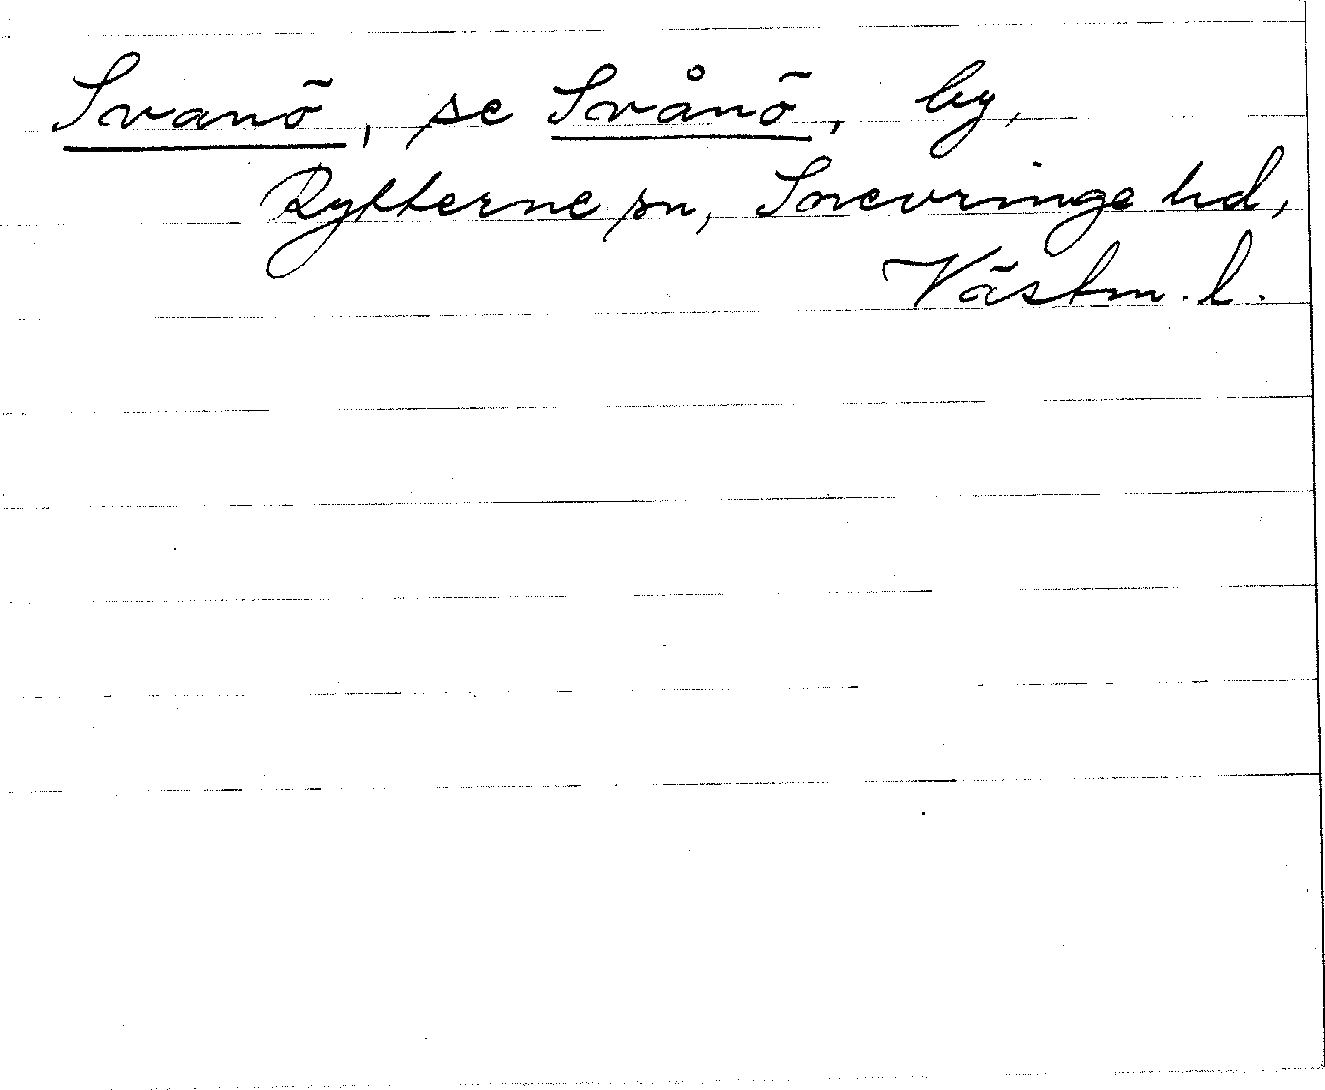 Svanö, se Svånö, by,
Rytterne sn, Snevringe hd,
Västm. l.